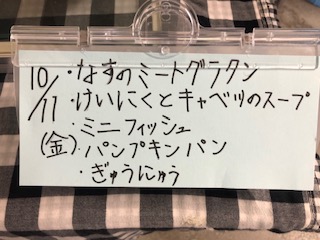 10/11(金)
・なすのミートグラタン
・けいにくとキャベツのスープ
・ミニフィッシュ
・パンプキンパン
・ぎゅうにゅう